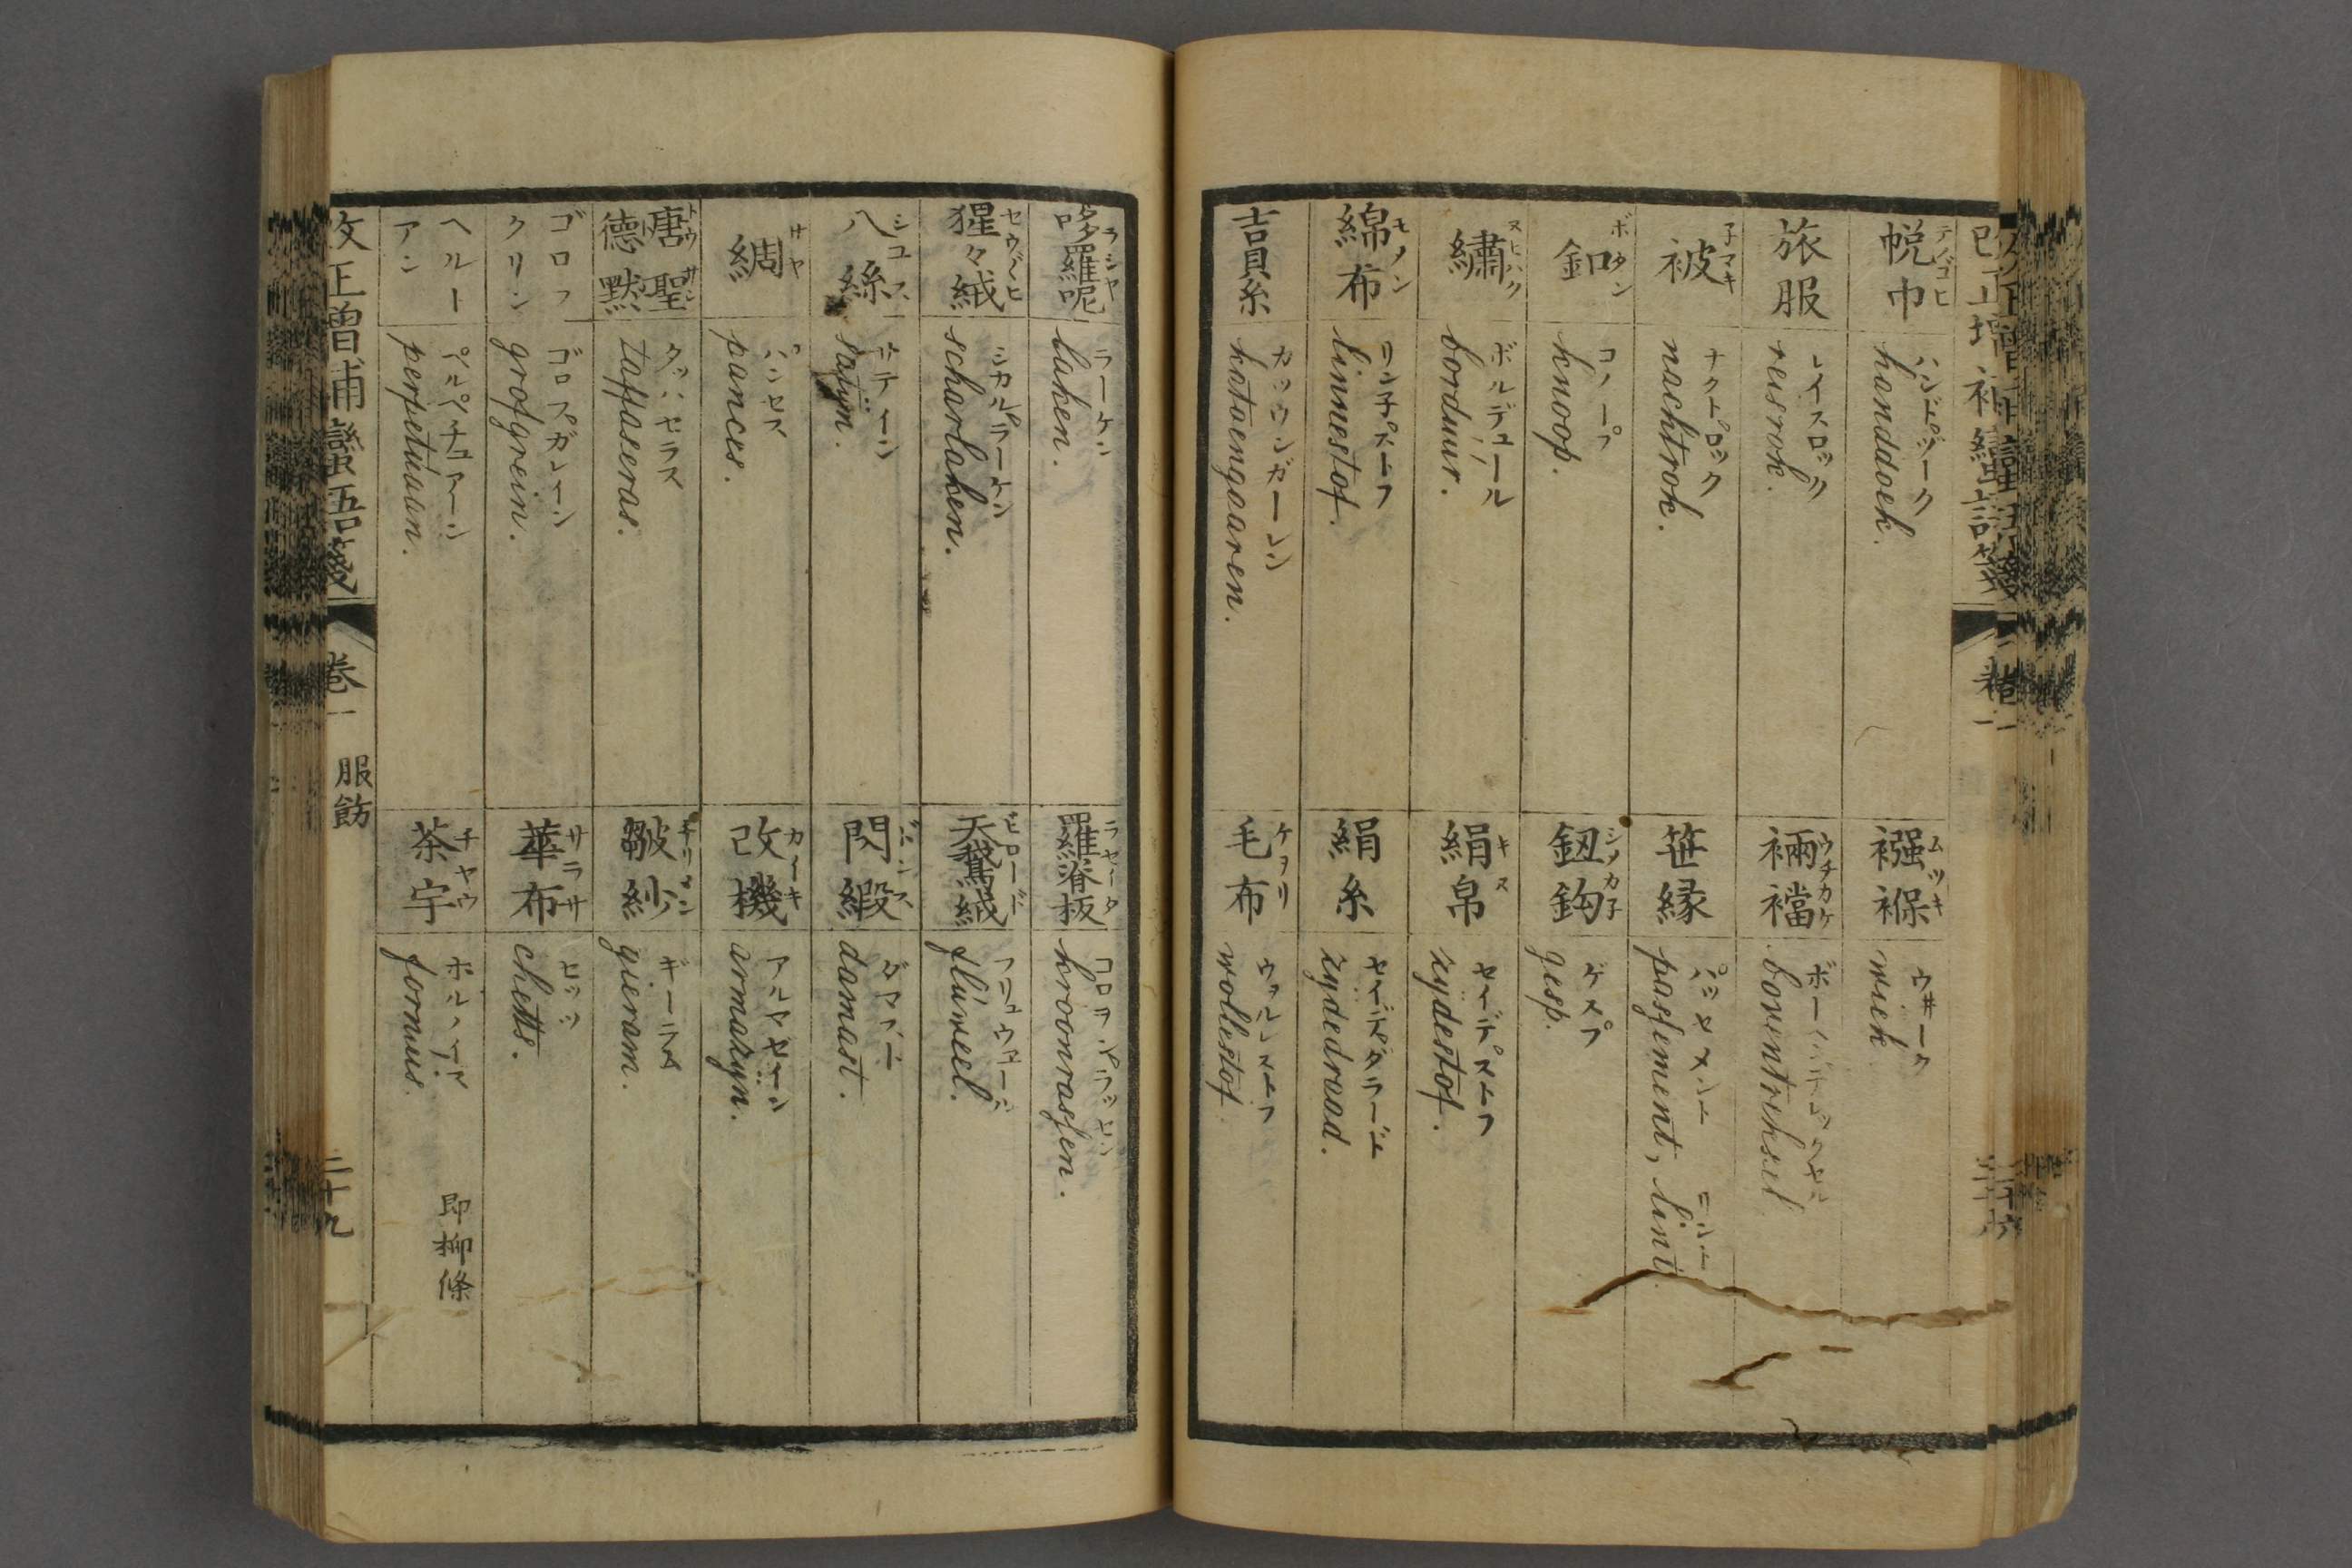 帨巾 テノゴヒ
ハンドヅーク
handdoek.
襁褓 ムツキ
ウ井ーク
wiek.
旅服
レイスロック
reisrok.
裲襠 ウチカケ
被 子マキ
ナクトロック
nachtrok.
笹縁
パッセメント
passement, lint.
釦 ボタン
コノープ
knoop.
釼鈎 シメカ子
ゲスプ
gesp.
繡 ヌヒハク
ボルデュール
borduur.
絹帛 キヌ
セイデストフ
zydestof.
綿布 モメン
リン子ストフ
linnestof.
絹糸
セイデダラード
zydedraad.
吉貝糸
カッウンガーレン
katoengaaren.
毛布 ケヲリ
ウヲルレストフ
wollestof.
哆羅呢 ラシヤ
ラーケン
laken.
羅脊板 ラセイタ
kroonrassen.
猩々絨 セウゞヒ
シカルラーケン
scharlaken.
天鵞絨 ビロード
フリュウェール
fluweel.
八絲 シユス
サテイーン
satÿn.
閃緞 ドンス
ダマスト
damast.
綢 サヤ
パンセス
pances.
改機 カイキ
アルマゼイーン
armazÿn.
唐聖德黙 トウサントメ
タッハセラス
taffaseras.
皺紗 チリメン
ギーラム
gieram.
ゴロフクリン
ゴロスガレイン
grofgrein.
華布 サラサ
セッツ
chetts.
ヘルートアン
ペルペチュアーン
perpetuaan.
茶宇 チヤウ
fornuis.
即柳條
改正增補蠻語箋
卷一
服飭
二十九